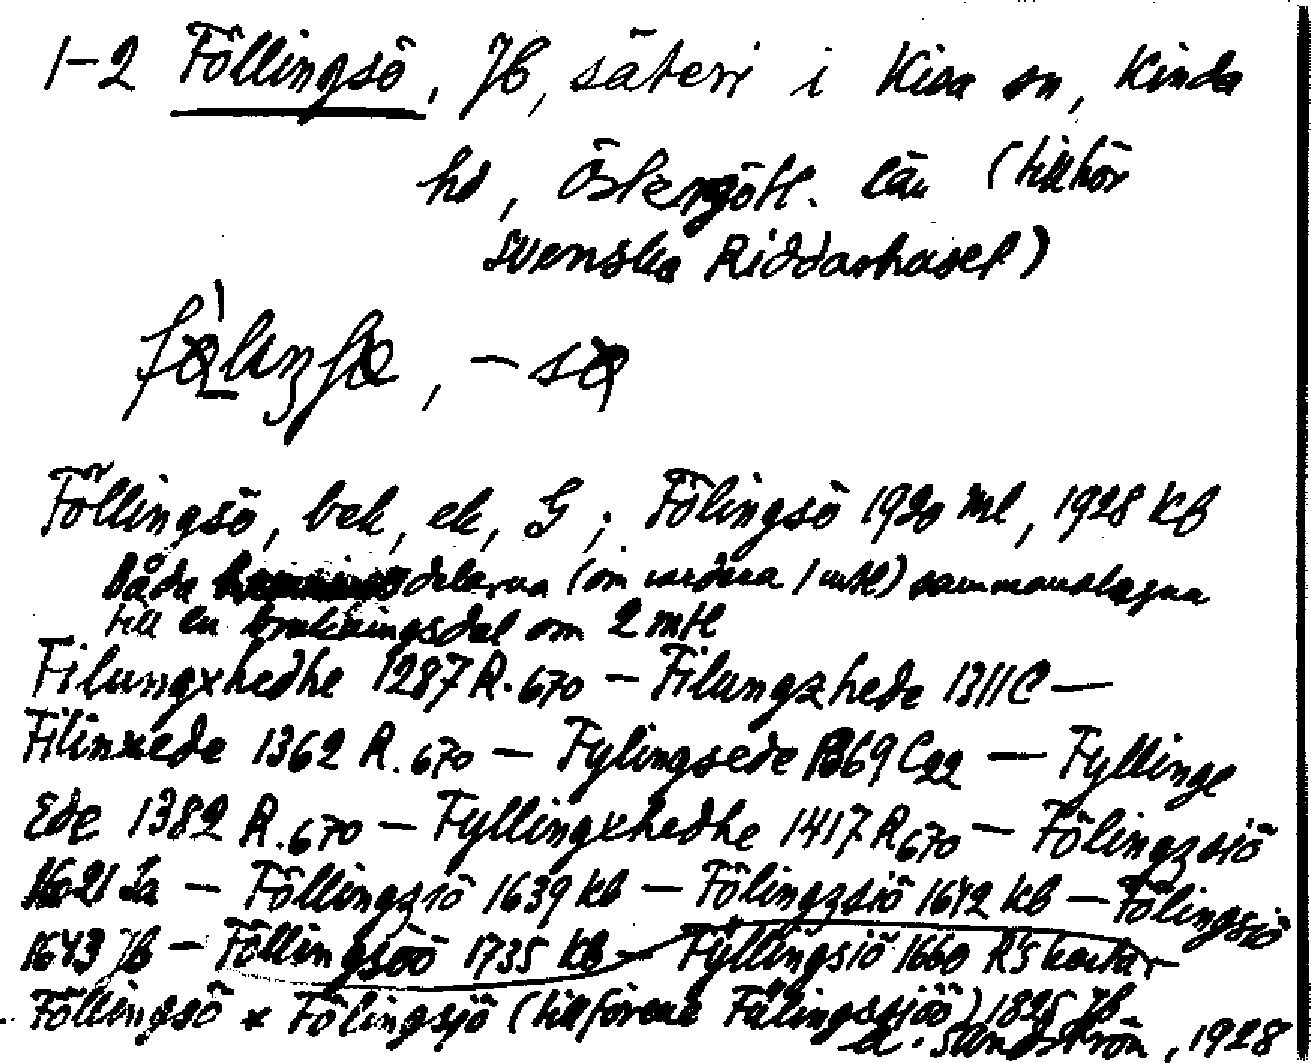 1-2 Föllingsö, Jb, säteri i Kisa sn, Kinda
hd, Östergötl. län (tillhör
Svenska Riddarhuset)
, -sø
Föllingsö, bek, ek, G; Fölingsö 1920 Ml, 1928 Kb
Båda delarna (om vardera 1 mtl) sammanslagna
till en brukningsdel om 2 mtl
Filungxhedhe 1287 R.670 — Filungzhede 1311 C —
Filinxede 1362 R.670 — Fylingsede 1369 C22 — Fyllinge
Ede 1382 R.670 — Fyllingxhedhe 1417 R670 — Fölingzsiö
1621 Ja — Föllingzsiö 1639 Kb — Fölingzsiö 1642 Kb — Fölingsiö
1643 Jb — Föllingsöö 1735 Kb — Fyllingsiö 1660 R's karta —
Föllingsö × Fölingsjö (tillförene Fälingssjöö) 1825 Jb
A. Sandström, 1928